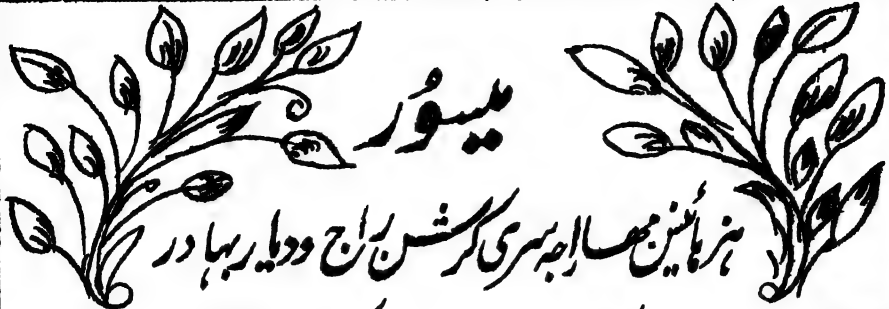 میسوُر
ہزہائینس مہاراجہ سری کرشن راج ودیار بہادر